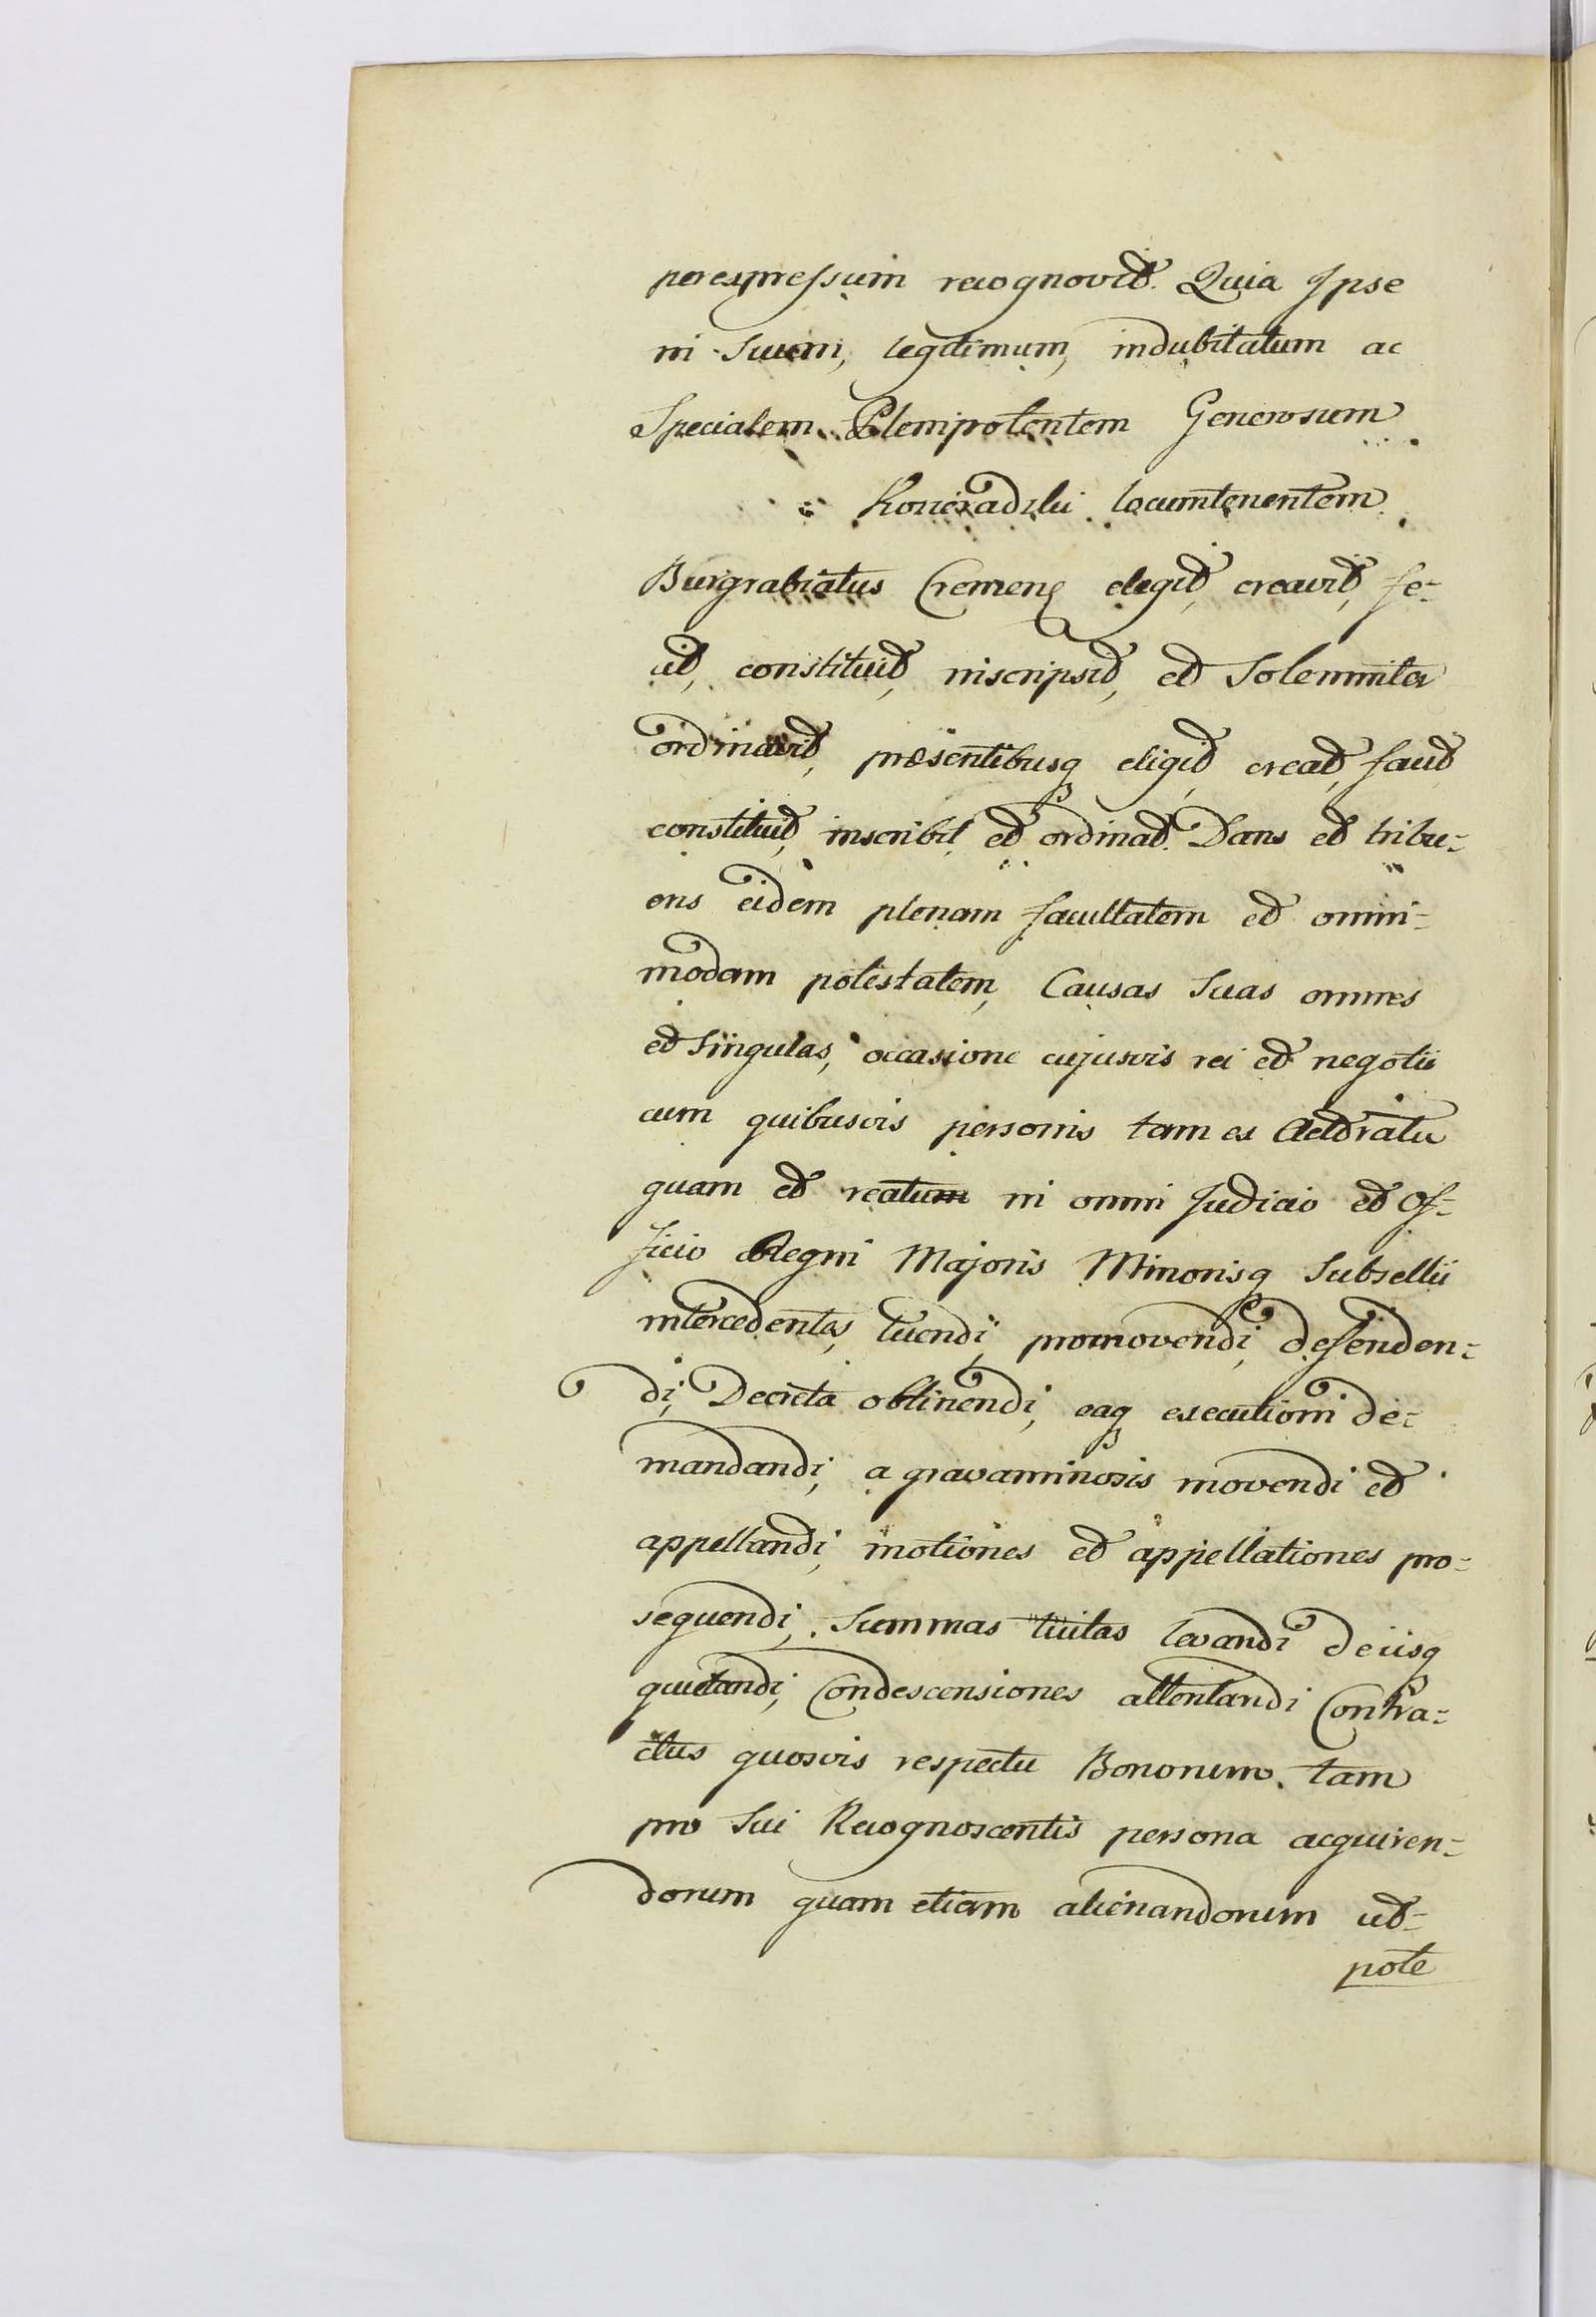 per expressum recognovit. Quia Ipse
in Suum, legitimum, indubitatum ac
Specialem Plenipotentem Generosum
locumtenentem
Burgrabiatus Cremenę elegit, creavit, fe-
cit, constituit, inscripsit, et Solemniter
ordinavit, præsentibusq eligit, creat, facit
constituit, inscribit, et ordinat. Dans et tribu-
ens eidem plenam facultatem et omni-
modam potestatem, Causas Suas omnes
et Singulas, occasione cujusvis rei et negotii
cum quibusvis personis tam ex Actoratu
quam et reatu in omni Judicio et Of-
ficio Regni Majoris Minorisq Subsellii
intercedentes, tuendi, promovendi, defenden-
di, Decreta obtinendi, eaq executioni de-
mandandi, a gravaminosis movendi et
appellandi, motiones et appellationes pro-
sequendi, Summas levandi deiisq
quietandi, Condescensiones attentandi Contra-
ctus quosvis respectu Bonorum tam
pro Sui Recognoscentis persona acquiren-
dorum quam etiam alienandorum ut-
pote